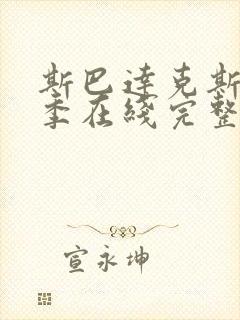 斯巴達克斯
季在綫完整
宣永坤